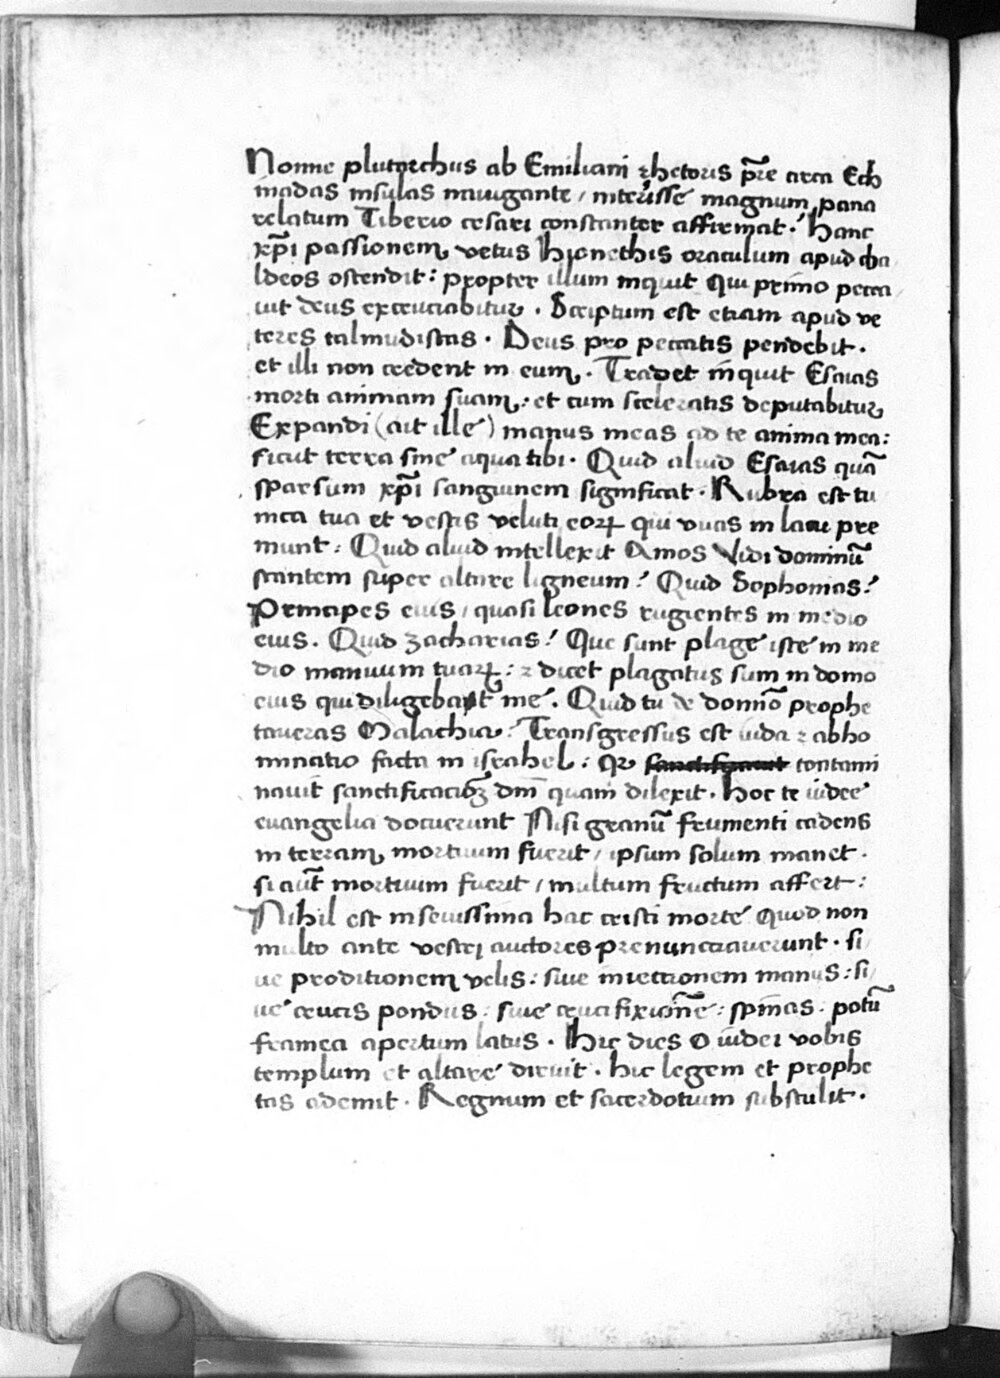 Nonne plutarchus ab Emiliani rhetoris p̄re circa Ech
inadas insulas navigante / interisse magnum pana
relatum Tiberio cesari constanter affirmat. Hanc
xp̄i passionem vetus hionethis oraculum apud cha
ldeos ostendit: propter illum inquit Qui primo pecca
uit deus excruciabitur. Scriptum est etiam apud ve
teres talmudistas. Deus pro peccatis pendebit.
et illi non credent in eum. Tradet inquit Esaias
morti animam suam: et cum sceleratis deputabitur
Expandi (ait ille) manus meas ad te anima mea:
sicut terra sine aqua tibi. Quid aliud Esaias quā
sparsum xp̄i sanguinem significat. Rubra est tu
nica tua et vestis veluti eoꝝ qui vuas in lacu pre
munt: Quid aliud intellexit Amos Vidi dominū
stantem super altare ligneum? Quid Sophonias?
Principes eius / quasi leones rugientes in medio
eius. Quid zacharias? Que sunt plage iste in me
dio manuum tuaꝝ: ⁊ dicet plagatus sum in domo
eius qui diligebant me. Quid tu de domīo prophe
taueras Malachia? Transgressus est iuda ⁊ abho
minatio facta in israhel: qꝛ sanctificauit contami
nauit sanctificacioꝫ dn̄i quam dilexit. Hoc te iudee
euangelia docuerunt Nisi granū frumenti cadens
in terram mortuum fuerit / ipsum solum manet.
si aut̄ mortuum fuerit / multum fructum affert:
Nihil est in seuissima hac cristi morte Quod non
multo ante vestri auctores prenunctiauerunt. si
ue proditionem velis: siue iniectionem manus: si
ue crucis pondus: siue crucifixionē: spinas: potū
framea apertum latus. Hic dies o iudei vobis
templum et altare diruit. hic legem et prophe
tas ademit. Regnum et sacerdotium substulit.